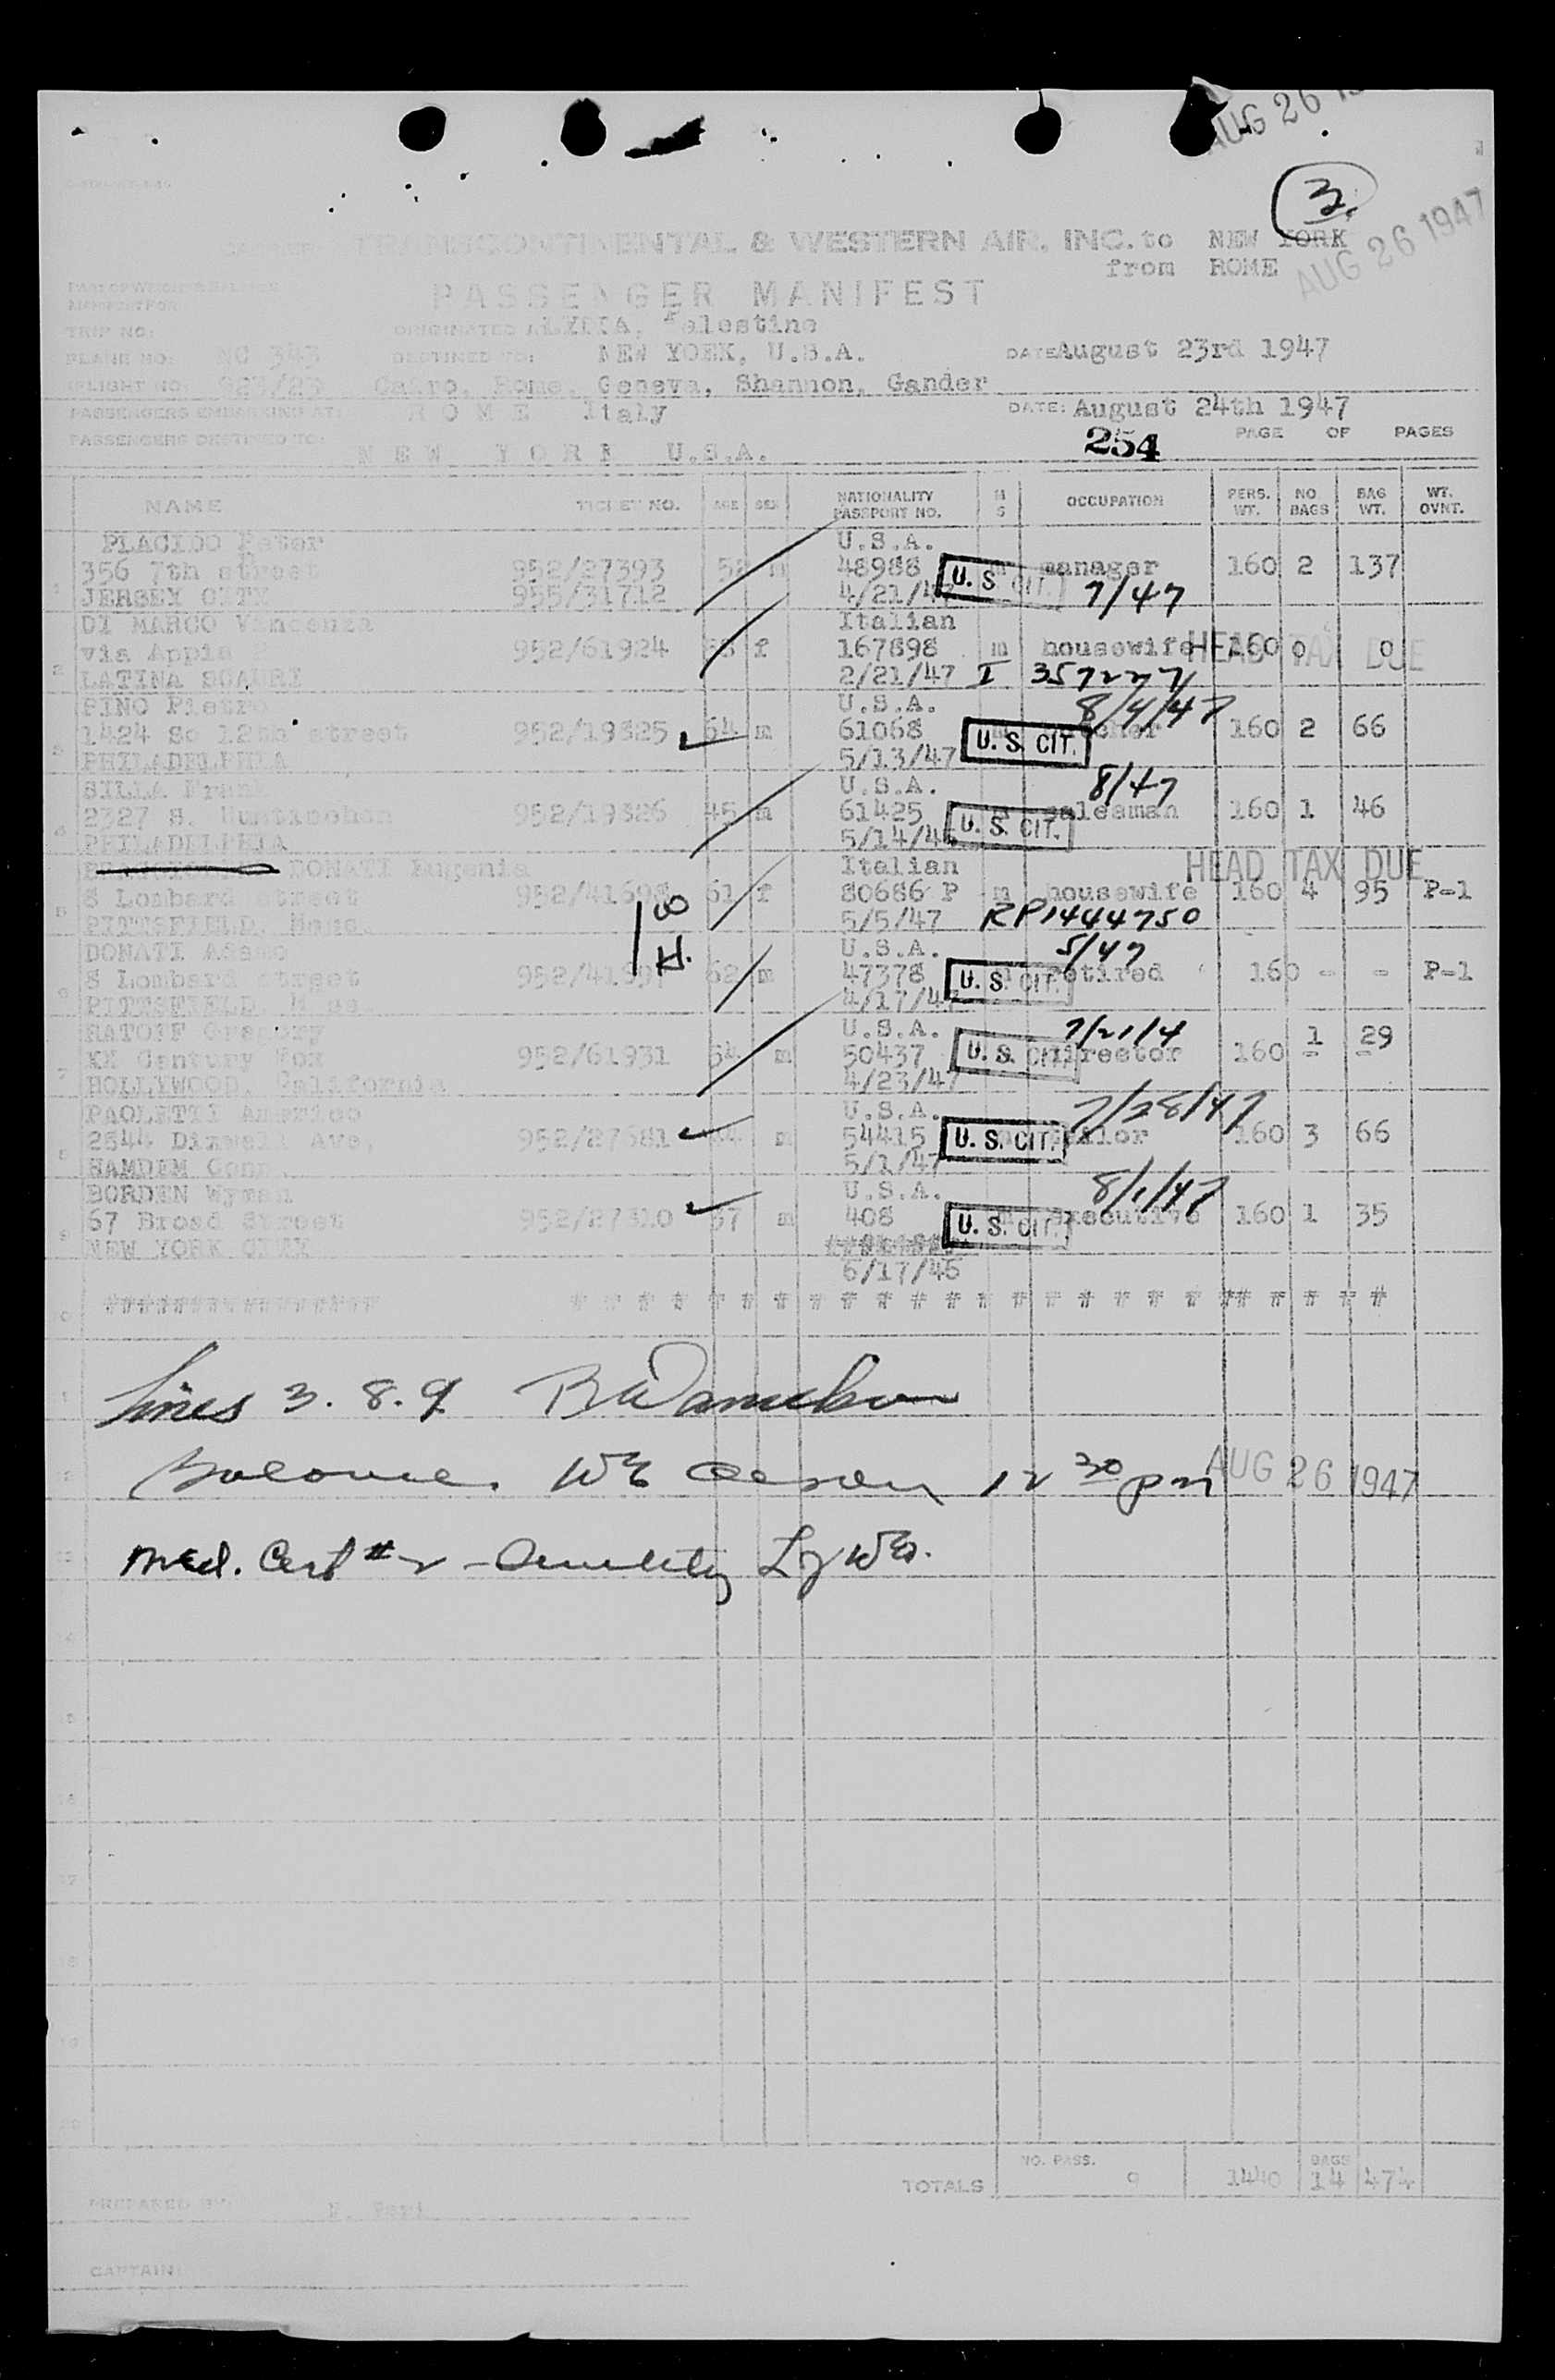 AUG 26
3.
TRANSCONTINENTAL & WESTERN AIR, INC. to NEW YORK
AUG 26 1947
from ROME
PASSENGER MANIFEST
MANIFEST FOR
TRIP NO: ORIGINATED LYDDA, Palestine
PLANE NO: NC 343 DESTINED TO: NEW YORK, U.S.A. DATE August 23rd 1947
FLIGHT NO: 923/23 Cairo, Rome, Geneva, Shannon, Gander
PASSENGERS EMBARKING AT: ROME Italy DATE: August 24th 1947
PASSENGERS DESTINED TO: NEW YORK U.S.A. 254 PAGE OF PAGES
NAME TICKET NO. AGE SEX NATIONALITY PASSPORT NO. M S OCCUPATION PERS. WT. NO BAGS BAG WT. WT. OVNT.
PLACIDO Peter U.S.A.
356 7th street 952/27393 m 48988 U. S. CIT. manager 160 2 137
JERSEY CITY 955/31712 4/21/47 7/47
DI MARCO Vincenza Italian
via Appia 952/61924 f 167898 m housewife 160 0 0 HEAD TAX DUE
LATINA SCAURI 2/21/47 I 357227
PINO Pietro U.S.A. 8/4/47
1424 So 12th street 952/19325 64 m 61068 U. S. CIT. 160 2 66
PHILADELPHIA 5/13/47
SILLA U.S.A. 8/47
2327 S. 952/19326 45 m 61425 U. S. CIT. salesman 160 1 46
PHILADELPHIA 5/14/46
DONATI Eugenia Italian HEAD TAX DUE
8 Lombard street 61 f 80686 P m housewife 160 4 95 P-1
PITTSFIELD, Mass 5/5/47 RP1444750
DONATI Adamo U.S.A. 5/47
8 Lombard street 62 m 47378 U. S. CIT. retired 160 - - P-1
PITTSFIELD, Mass 4/17/47
RATOFF Gregory U.S.A. 7/21/4
XX Century Fox 952/61931 54 m 50437 U. S. CIT. director 160 1 29
HOLLYWOOD California 4/23/47
PAOLETTI Americo U.S.A. 7/28/47
2544 Dixwell Ave, 952/27681 m 54415 U. S. CIT. tailor 160 3 66
HAMDEM Conn 5/1/47
BORDEN Wyman U.S.A. 8/1/47
67 Broad Street 952/27310 57 m 408 U. S. CIT. executive 160 1 35
NEW YORK
6/17/46
Lines 3. 8. 9
12 30 pm AUG 26 1947
Med. Cert # 2
NO. PASS. BAGS
TOTALS 9 1440 14 474
PREPARED BY:
CAPTAIN: